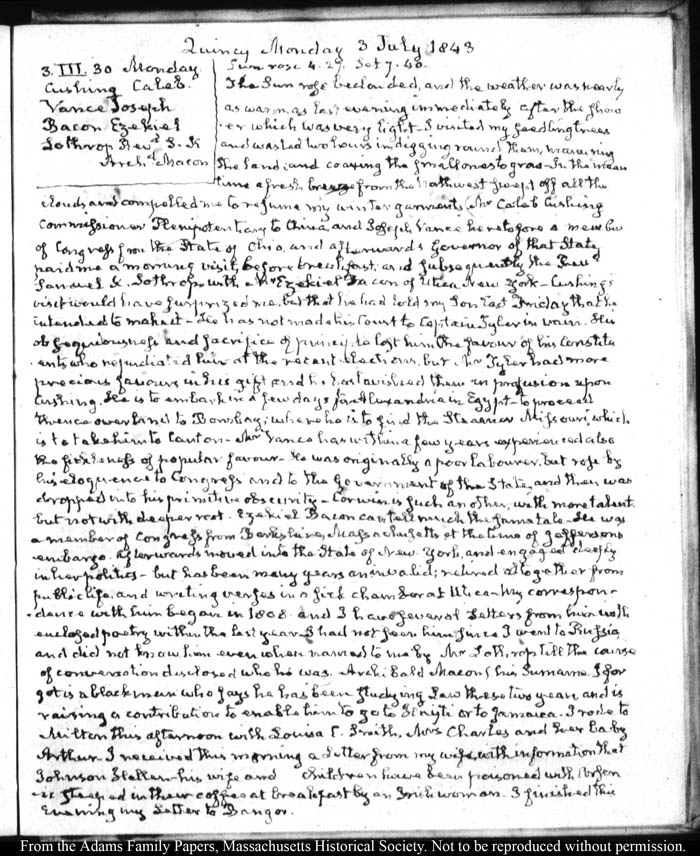 Quincy Monday 3 July 1843
3. III. 30 Monday
Cushing Caleb.
Vance Joseph
Bacon Ezekiel
Lothrop Revd. S. K
Archd. Macon
Sun rose 4. 27. Set 7. 40.
The Sun rose beclouded, and the weather was nearly
as warm as last evening immediately after the show
er which was very light. I visited my seedling trees
and wasted two hours in digging round them, manuring
the land; and coaxing the small ones to grow. In the mean
time a fresh breeze from the Northwest swept off all the
clouds and compelled me to resume my winter garments. Mr Caleb Cushing
Commissioner Plenipotentiary to China, and Joseph Vance heretofore a member
of Congress from the State of Ohio, and afterwards Governor of that State
paid me a morning visit, before breakfast, and subsequently, the Revd.
Samuel K. Lothrop, with Mr Ezekiel Bacon of Utica, New York - Cushing's
visit would have surprized me, but that he had told my Son last Friday that he
intended to make it - He has not made his Court to Captain Tyler in vain. His
obsequiousness and sacrifice of principle lost him the favour of his constitu
ents who repudiated him at the recent elections, but Mr Tyler had more
precious favours in his gift and he has lavished them in profusion upon
Cushing. He is to embark in a few days for Alexandria in Egypt - to proceed
thence over land to Bombay; where he is to find the Steamer Missouri, which
is to take him to Canton - Mr Vance has within a few years experienced also
the fickleness of popular favour - He was originally a poor labourer, but rose by
his eloquence to Congress and to the Government of the State, and then was
dropped into his primitive obscurity - Corwin is such another, with more talent
but not with deeper root. Ezekiel Bacon can tell much the same tale - He was
a member of Congress from Berkshire, Massachusetts at the time of Jefferson's
embargo. Afterwards moved into the State of New York, and engaged deeply
in her politics - but has been many years an invalid; retired altogether from
public life, and writing verses in a sick chamber at Utica - My correspon
dence with him began in 1808. and I have several Letters from him with
enclosed poetry within the last year - I had not seen him since I went to Russia,
and did not know him even when named to me by Mr Lothrop till the course
of conversation disclosed who he was. Archibald Macon (his Surname I for
got is a black man who says he has been studying Law these two years, and is
raising a contribution to enable him to go to Hayti or to Jamaica. I rode to
Milton this afternoon with Louisa C. Smith, Mrs Charles and her baby
Arthur. I received this morning a Letter from my wife, with information that
Johnson Hellen his wife and children have been poisoned with Arsen
ic steeped in their coffee at breakfast by an Irish woman. I finished this
Evening my Letter to Bangor.
From the Adams Family Papers, Massachusetts Historical Society. Not to be reproduced without permission.